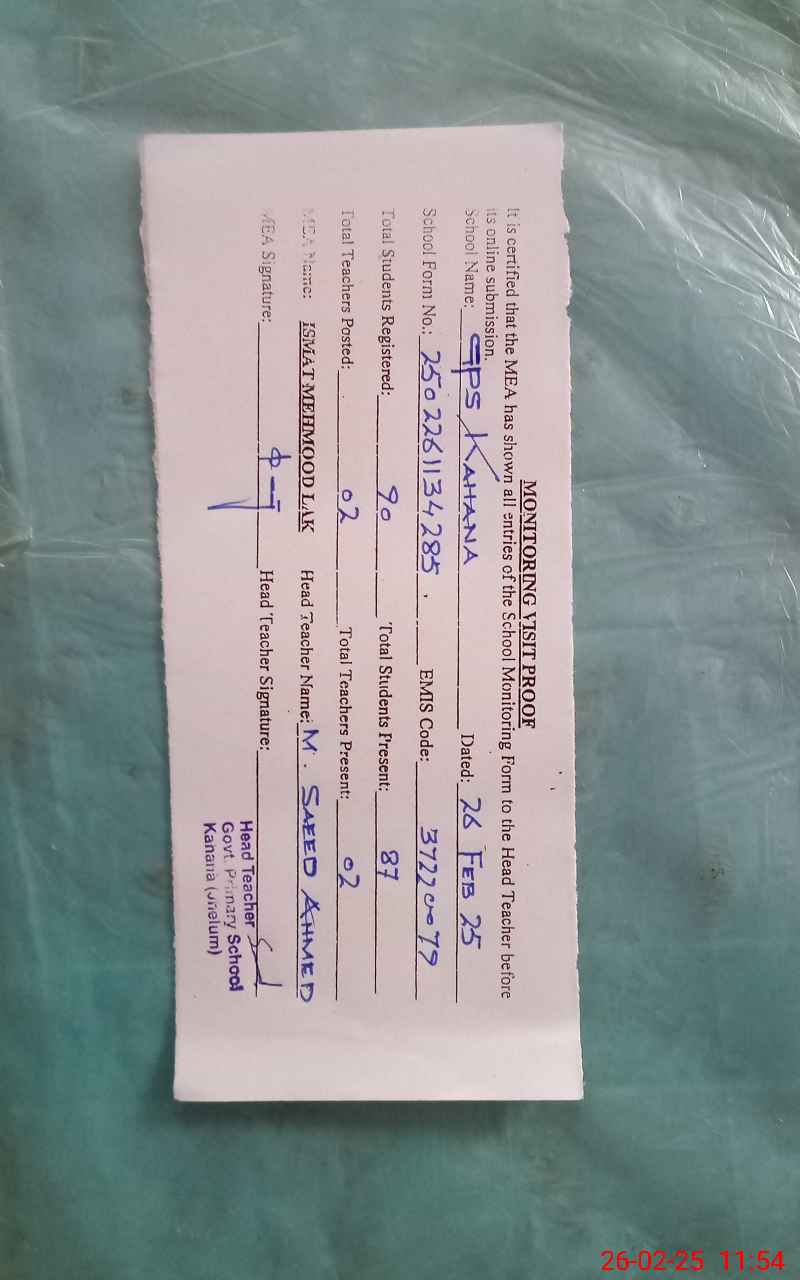 MONITORING VISIT PROOF
It is certified that the MEA has shown all entries of the School Monitoring Form to the Head Teacher before
its online submission.
School Name: GPS KAHANA Dated: 26 FEB 25
School Form No.: 2502261134285 EMIS Code: 37220079
Total Students Registered: 90 Total Students Present: 87
Total Teachers Posted: 02 Total Teachers Present: 02
MEA Name: ISMAT MEHMOOD LAK Head Teacher Name: M. SAEED AHMED
MEA Signature: Head Teacher Signature:
Head Teacher
Govt. Primary School
Kanana (Jhelum)
26-02-25 11:54